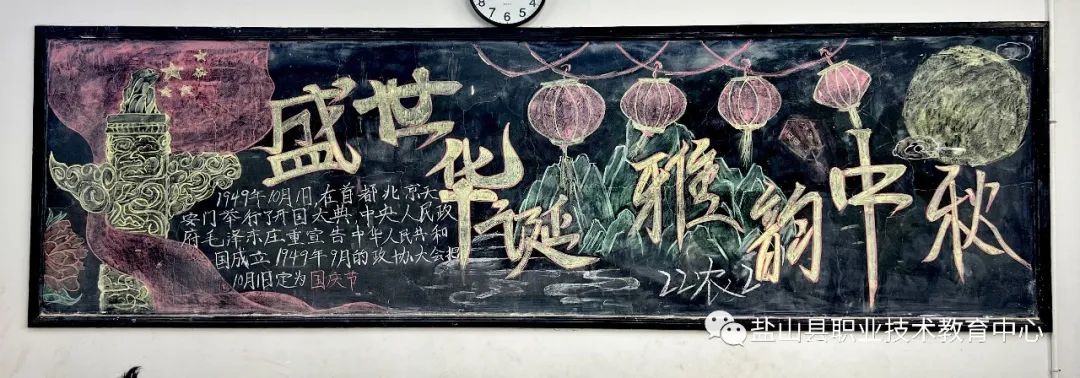 盛世华诞
雅韵中秋
1949年10月1日,在首都北京天
安门举行了开国大典,中央人民政
府毛泽东庄重宣告中华人民共和
国成立,1949年9月的政协大会把
10月1日定为国庆节
22农2
盐山县职业技术教育中心